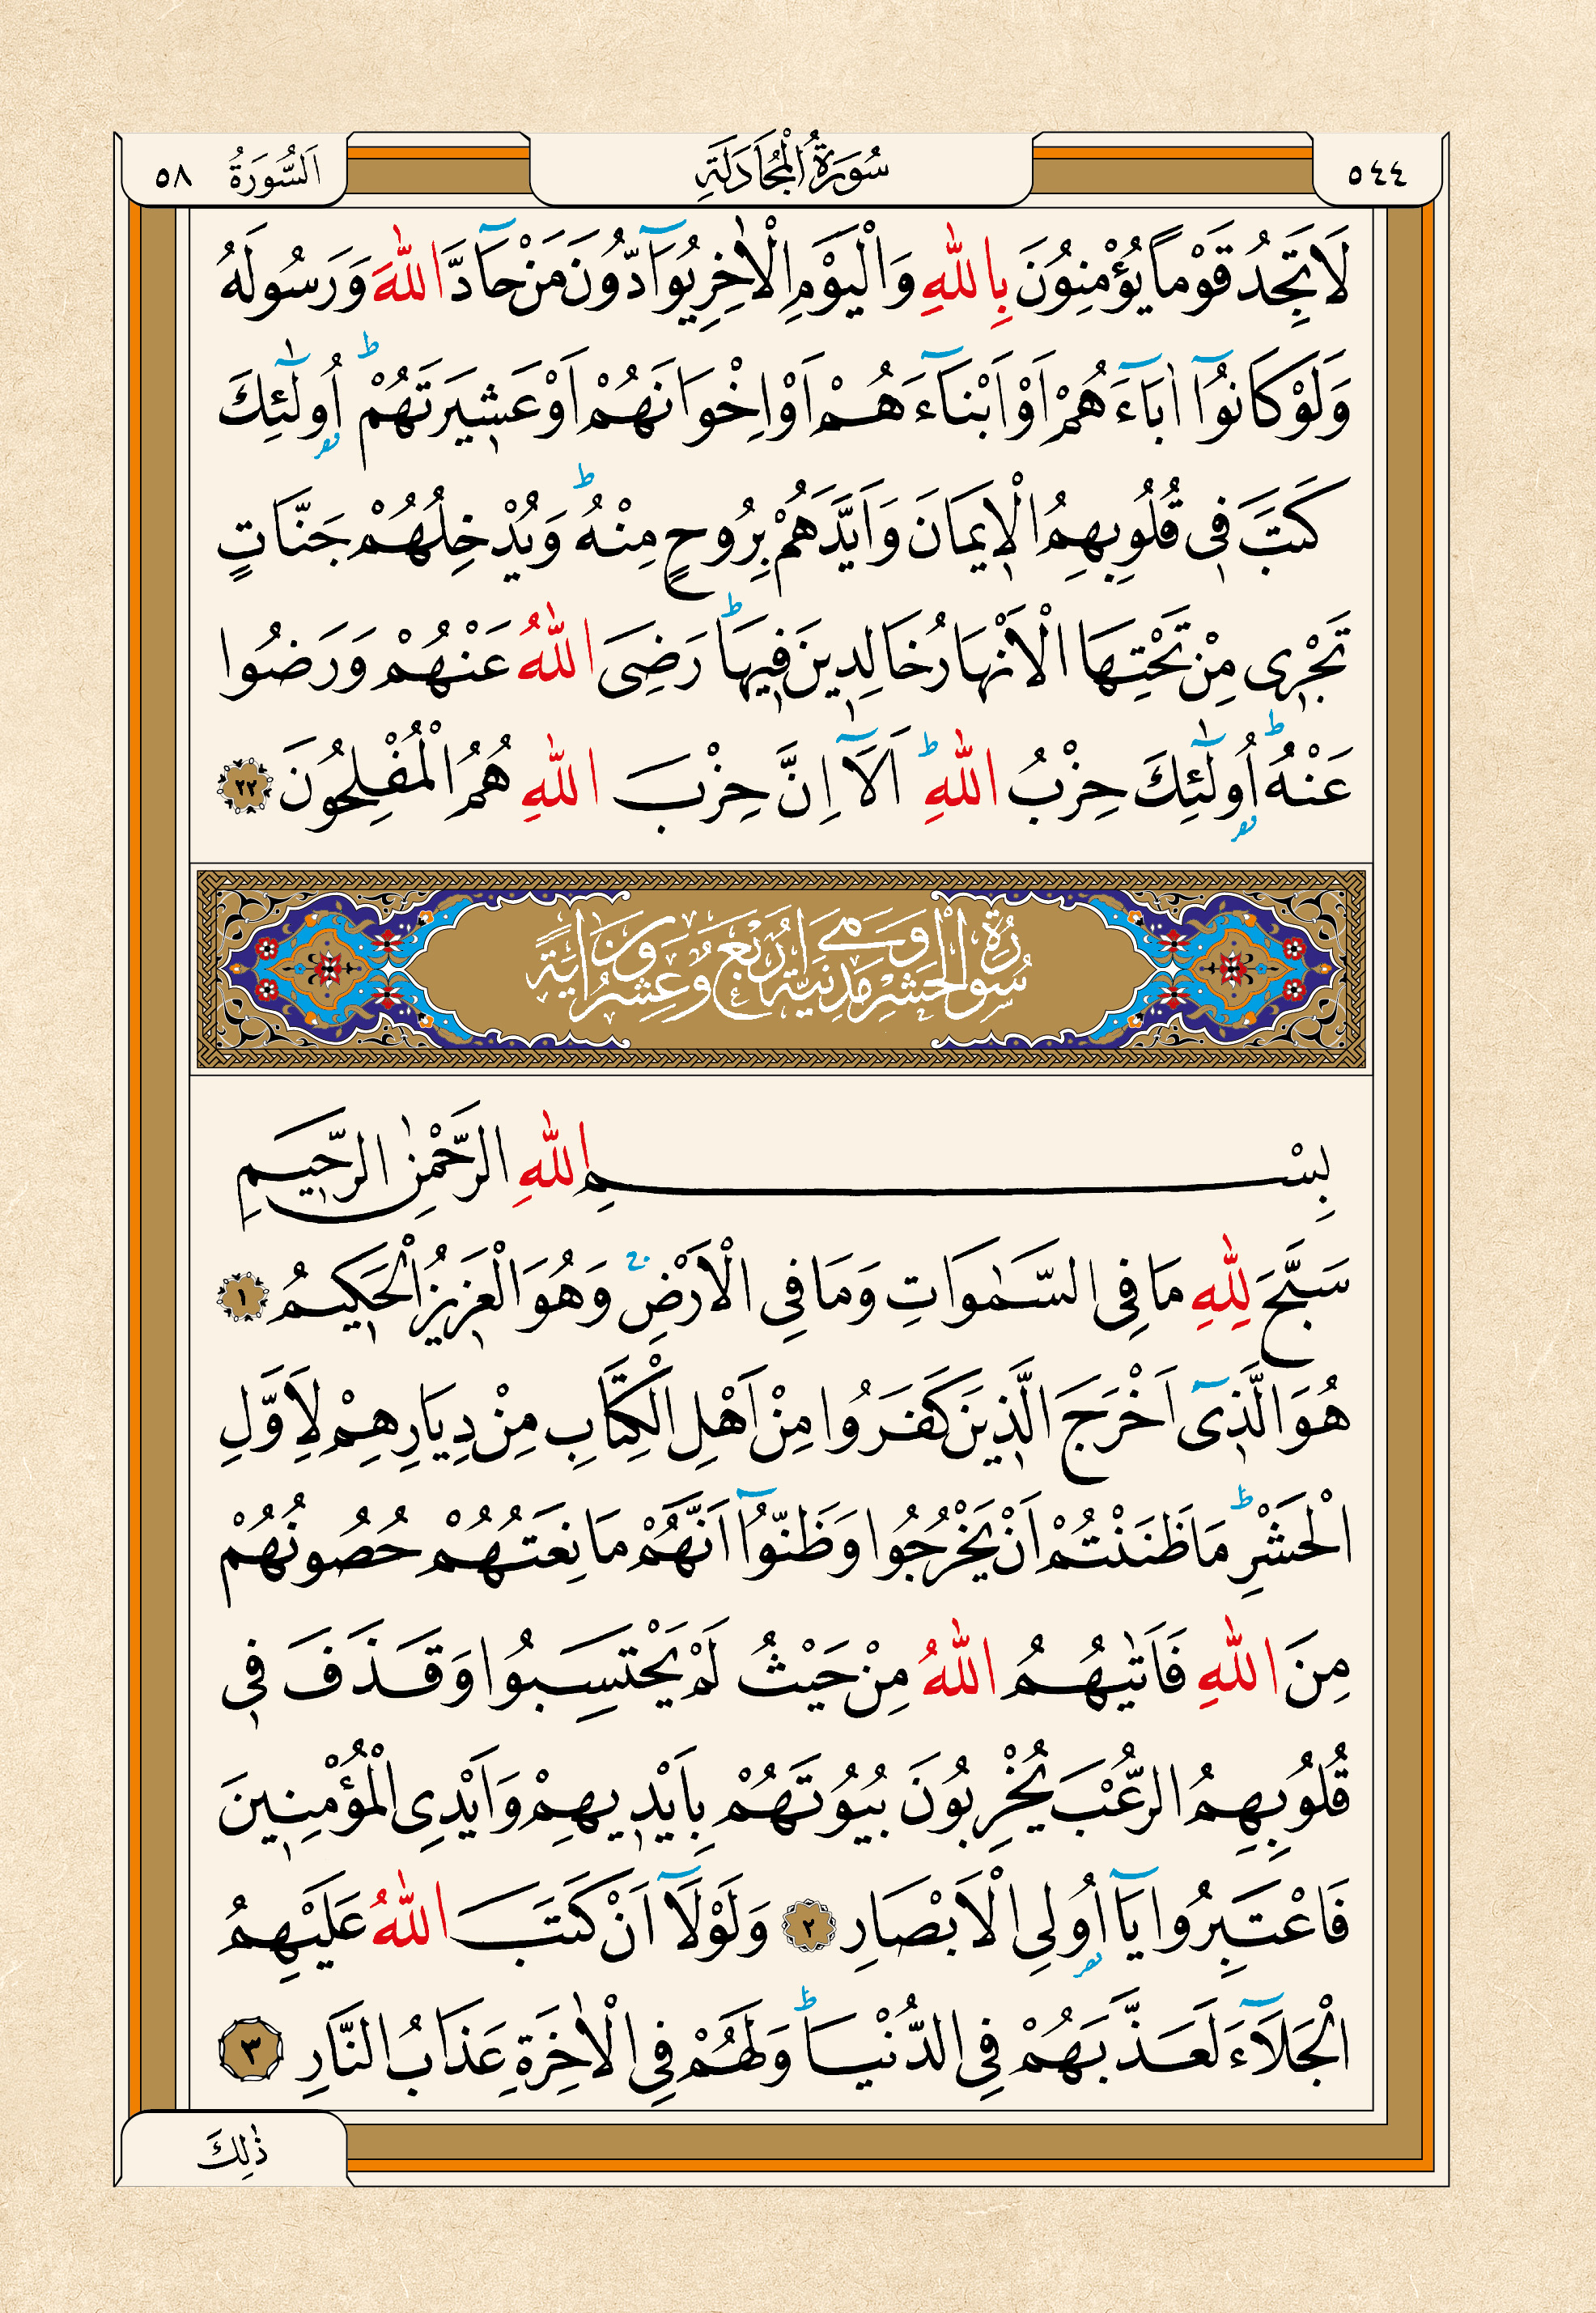 ٥٤٤
سُورَةُ الْمُجَادَلَةِ
اَلسُّورَةُ ٥٨
لَا تَجِدُ قَوْماً يُؤْمِنُونَ بِاللّٰهِ وَالْيَوْمِ الْاٰخِرِ يُوَآدُّونَ مَنْ حَآدَّ اللّٰهَ وَرَسُولَهُ
وَلَوْ كَانُوٓا اٰبَٓاءَهُمْ اَوْ اَبْنَٓاءَهُمْ اَوْ اِخْوَانَهُمْ اَوْ عَش۪يرَتَهُمْ ط اُو۬لٰٓئِكَ
كَتَبَ ف۪ي قُلُوبِهِمُ الْا۪يمَانَ وَاَيَّدَهُمْ بِرُوحٍ مِنْهُ ط وَيُدْخِلُهُمْ جَنَّاتٍ
تَجْر۪ي مِنْ تَحْتِهَا الْاَنْهَارُ خَالِد۪ينَ ف۪يهَا ط رَضِيَ اللّٰهُ عَنْهُمْ وَرَضُوا
عَنْهُ ط اُو۬لٰٓئِكَ حِزْبُ اللّٰهِ ط اَلَٓا اِنَّ حِزْبَ اللّٰهِ هُمُ الْمُفْلِحُونَ ٢٢
سُورَةُ الْحَشْرِ مَدَنِيَّةٌ وَهِيَ اَرْبَعٌ وَعِشْرُونَ اٰيَةً
بِسْمِ اللّٰهِ الرَّحْمٰنِ الرَّح۪يمِ
سَبَّحَ لِلّٰهِ مَا فِي السَّمٰوَاتِ وَمَا فِي الْاَرْضِ ج وَهُوَ الْعَز۪يزُ الْحَك۪يمُ ١
هُوَ الَّذ۪ٓي اَخْرَجَ الَّذ۪ينَ كَفَرُوا مِنْ اَهْلِ الْكِتَابِ مِنْ دِيَارِهِمْ لِاَوَّلِ
الْحَشْرِ ط مَا ظَنَنْتُمْ اَنْ يَخْرُجُوا وَظَنُّٓوا اَنَّهُمْ مَانِعَتُهُمْ حُصُونُهُمْ
مِنَ اللّٰهِ فَاَتٰيهُمُ اللّٰهُ مِنْ حَيْثُ لَمْ يَحْتَسِبُوا وَقَذَفَ ف۪ي
قُلُوبِهِمُ الرُّعْبَ يُخْرِبُونَ بُيُوتَهُمْ بِاَيْد۪يهِمْ وَاَيْدِي الْمُؤْمِن۪ينَ
فَاعْتَبِرُوا يَٓا اُو۬لِي الْاَبْصَارِ ٢ وَلَوْلَٓا اَنْ كَتَبَ اللّٰهُ عَلَيْهِمُ
الْجَلَٓاءَ لَعَذَّبَهُمْ فِي الدُّنْيَا ط وَلَهُمْ فِي الْاٰخِرَةِ عَذَابُ النَّارِ ٣
ذٰلِكَ